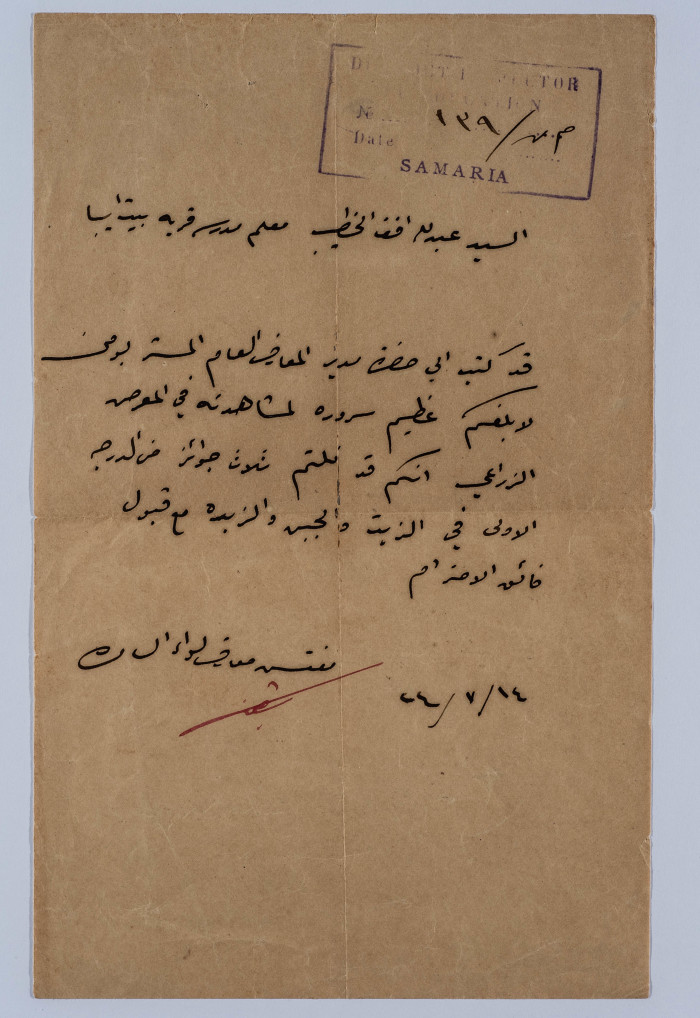 DISTRICT INSPECTOR
EDUCATION
№ ص.ن/١٣٩
Date
SAMARIA
السيد عبدالله الخطيب معلم مدرسة قرية بيت ايبا
قد كتب الي حضرة مدير المعارف العام المستر بومن
لابلغكم عظيم سروره لمشاهدته في المعرض
الزراعي انكم قد نلتم ثلاث جوائز من الدرجه
الاولى في الزيت والجبن والزبده مع قبول
فائق الاحترام
مفتش معارف لواء السامره
٢٤/٧/١٤